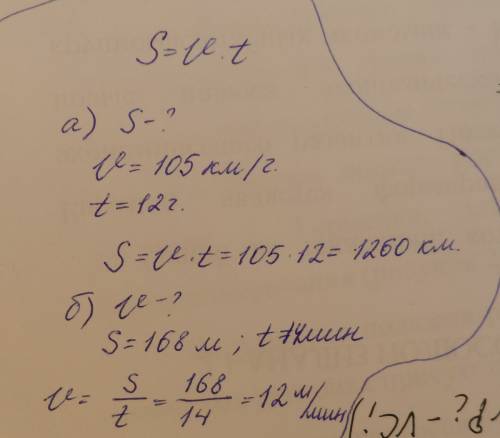 S = v · t
а) S – ?
v = 105 км/г.
t = 12 г.
S = v · t = 105 · 12 = 1260 км.
б) v – ?
S = 168 м ; t = 14 мин
v = S/t = 168/14 = 12 м/мин